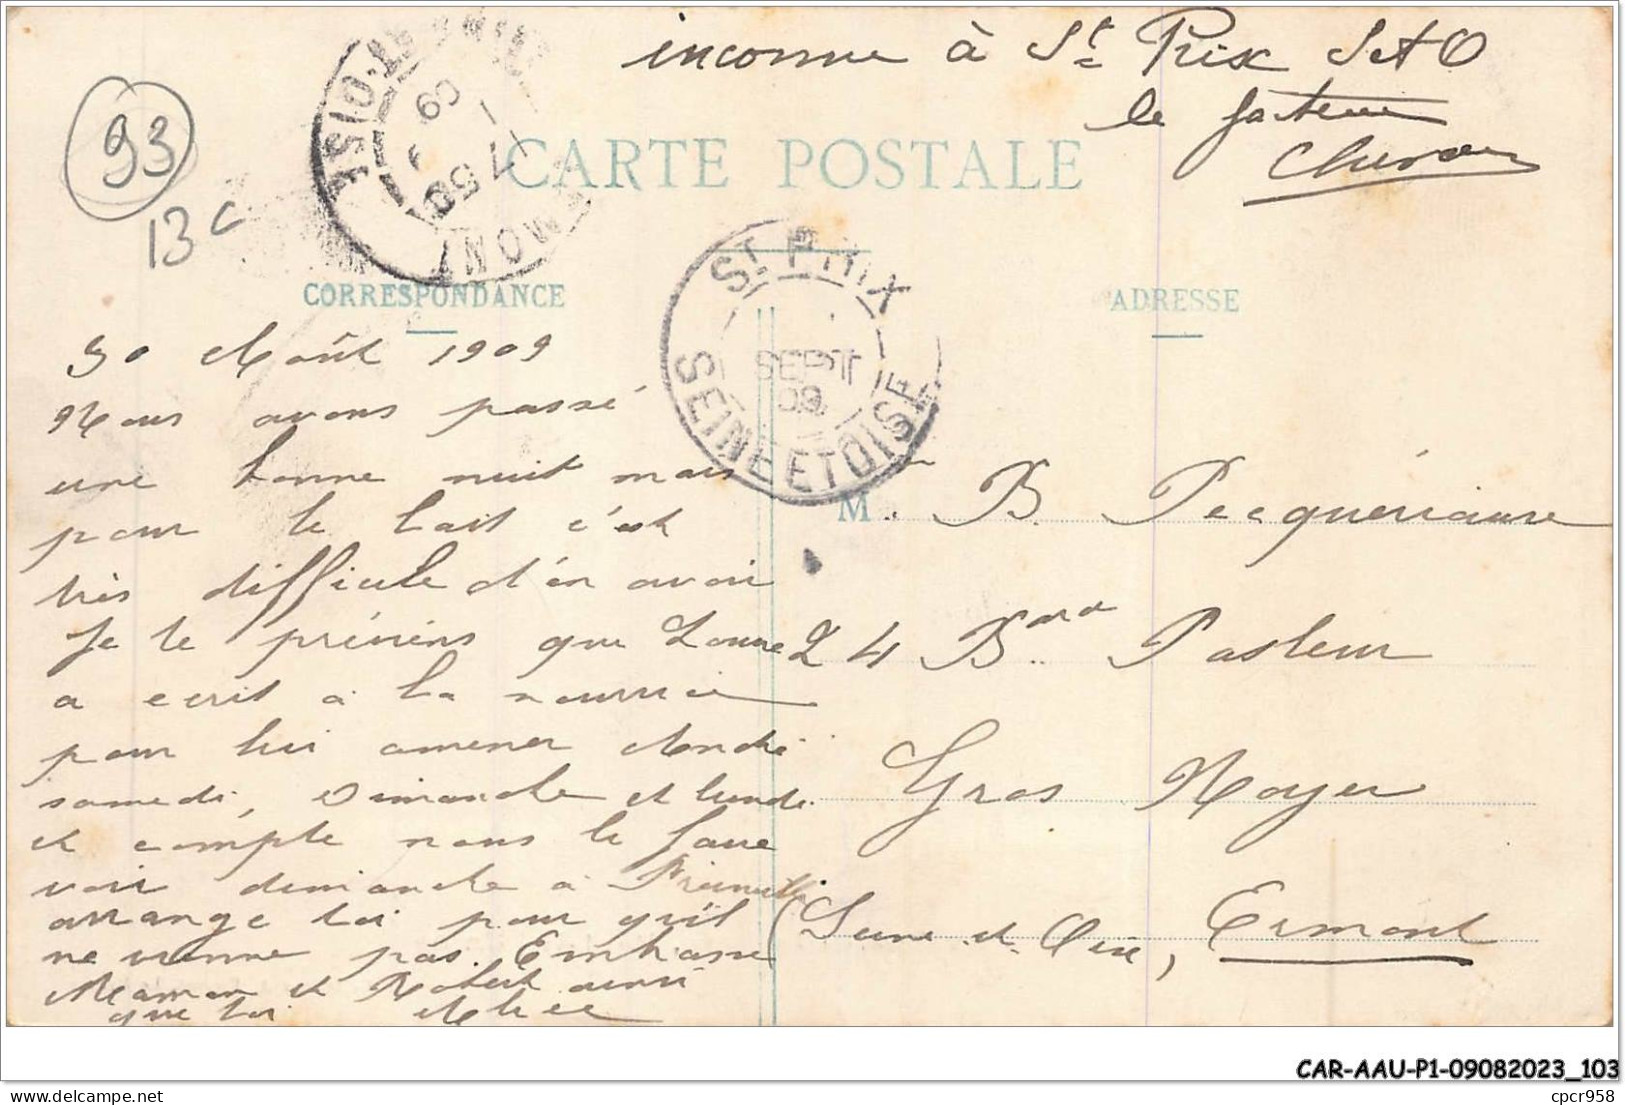 inconnu à St Prix S et O
le facteur
93
13c
ERMONT SEINE-ET-OISE
7 50
09
CARTE POSTALE
ST PRIX
SEPT
09
SEINE ET OISE
CORRESPONDANCE
ADRESSE
30 Août 1909
Nous avons passé
une bonne nuit mais
pour le lait c'est
très difficile d'en avoir
Je te préviens que
a ecrit à la nourrice
pour lui amener André
samedi, Dimanche et lundi
et compte nous le faire
voir dimanche à
arrange toi pour qu'il
ne vienne pas. Embrasse
Maman et Robert ainsi
que toi
M. B. Pecqueriaux
24 Bard Pasteur
Gros Noyer
Ermont
(Seine et Oise,
CAR-AAU-P1-09082023_103
cpcr958